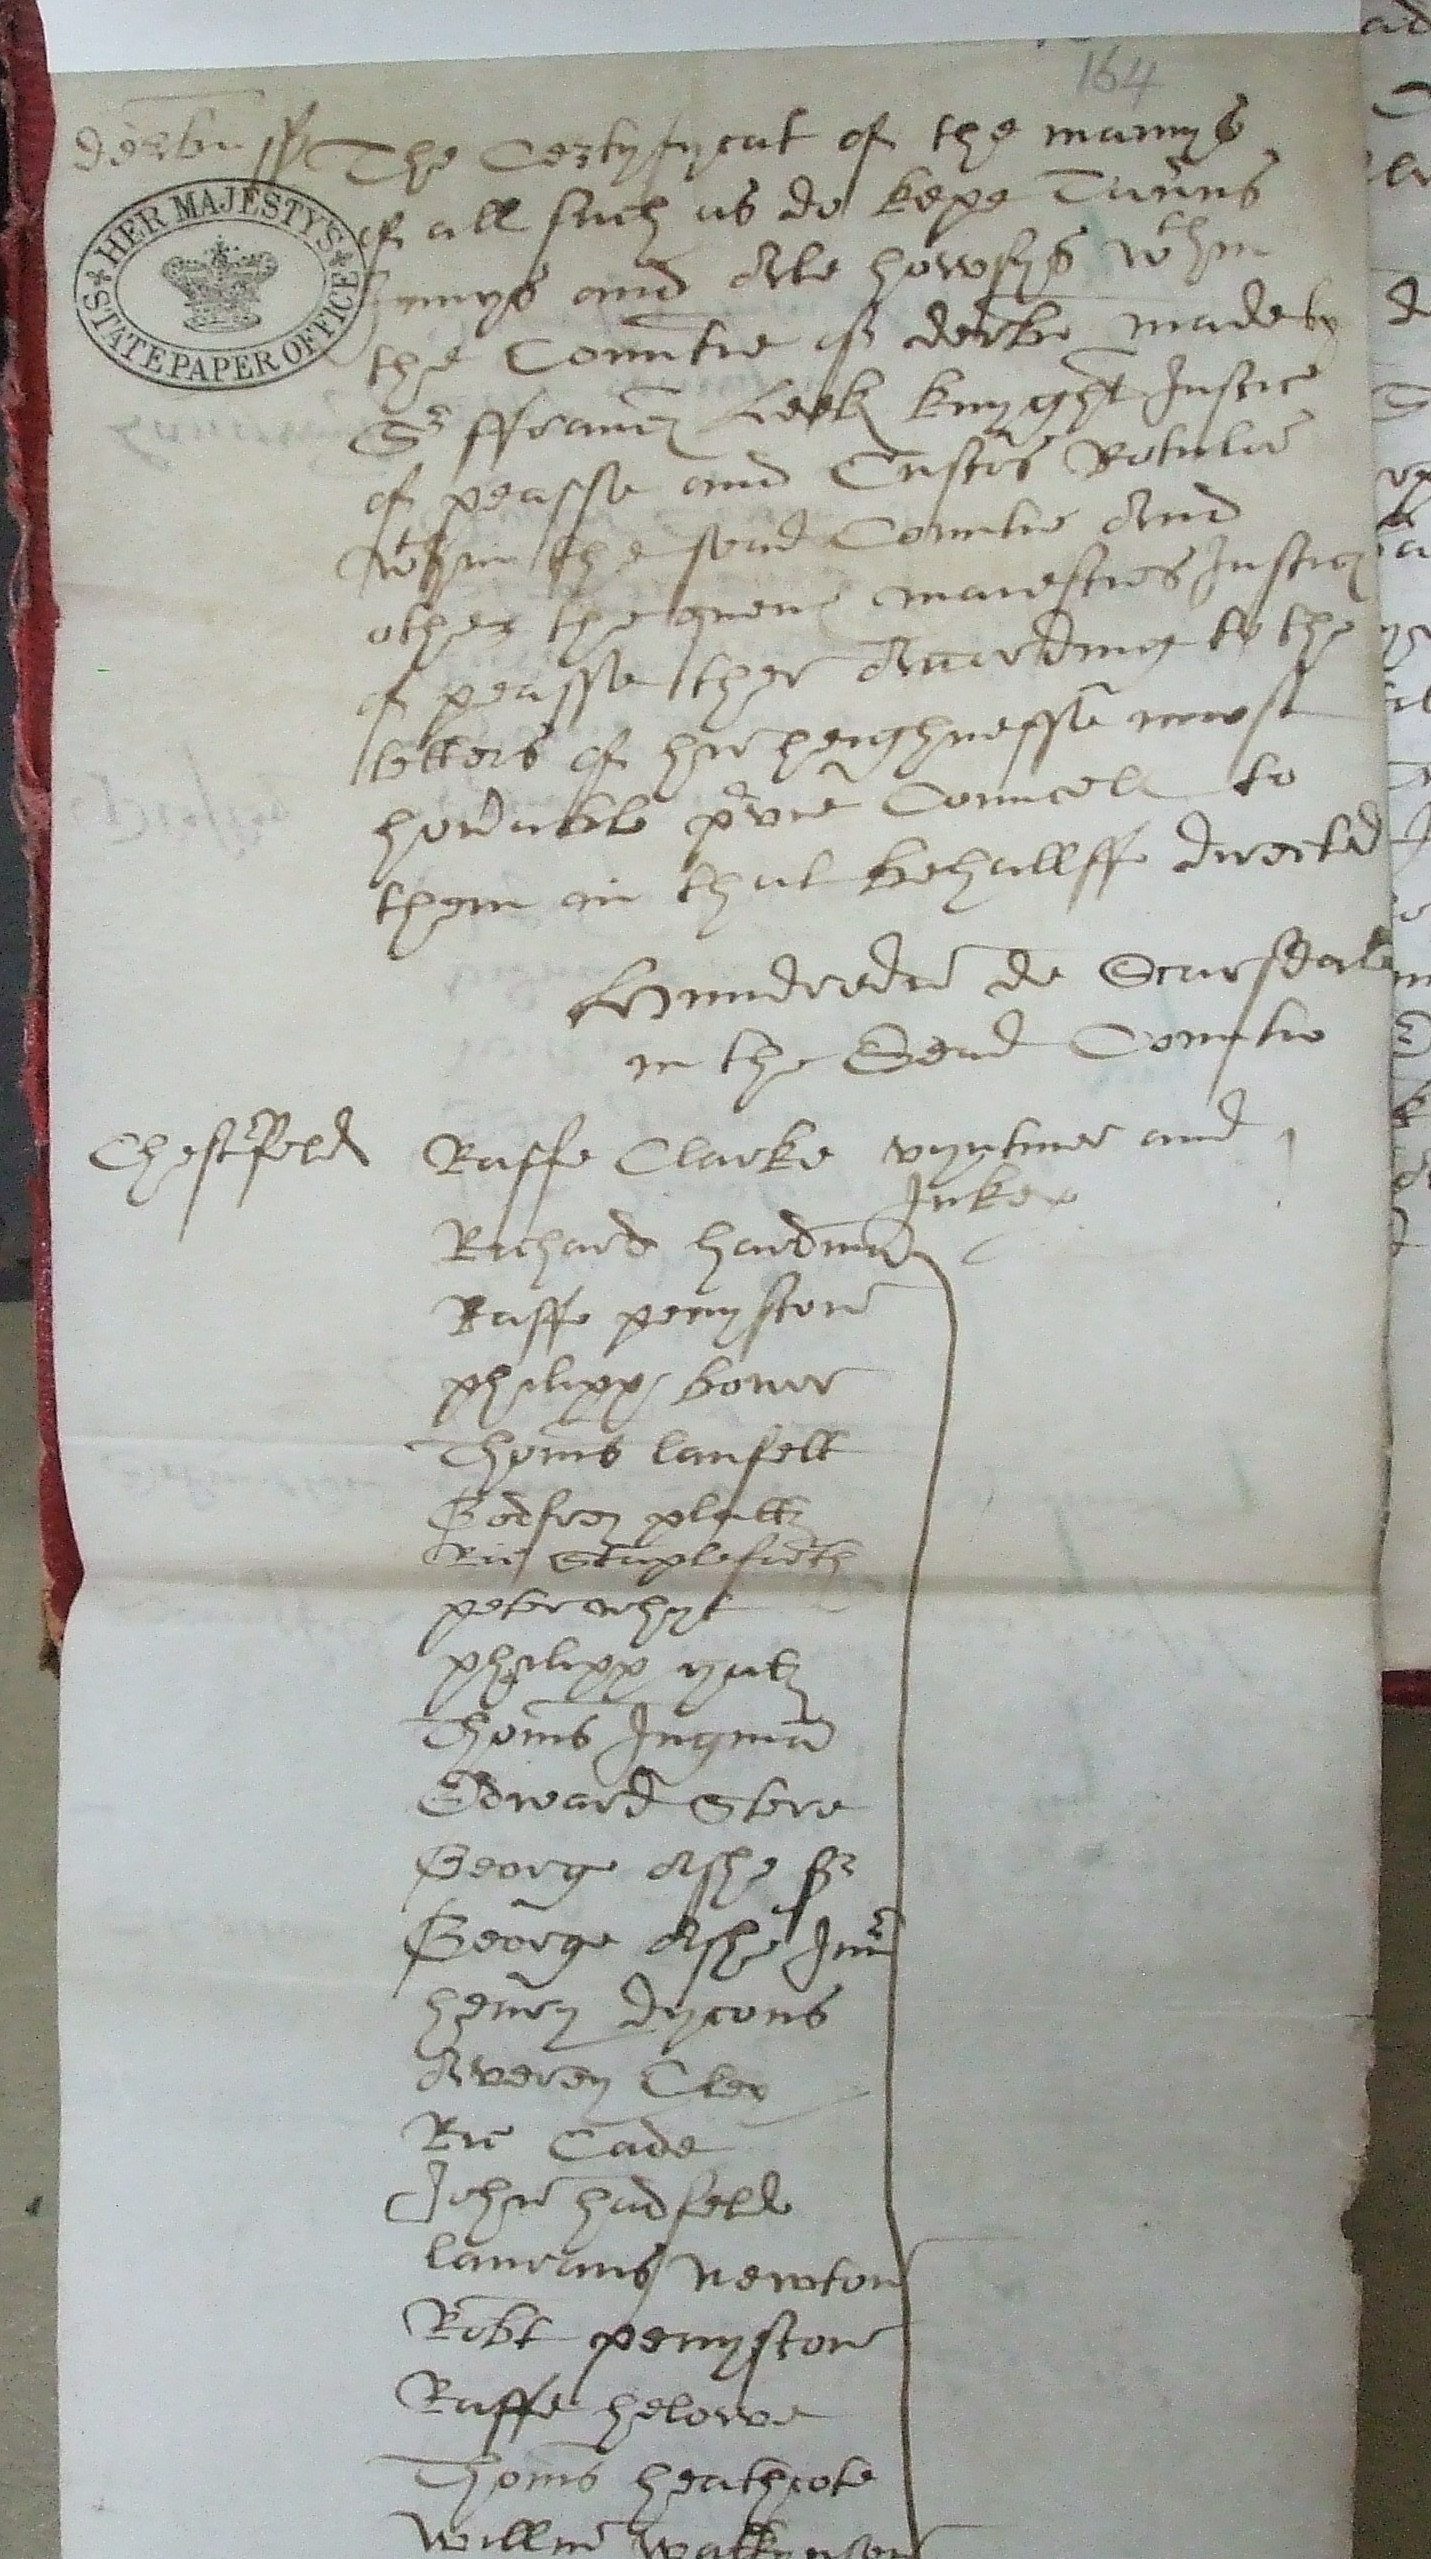 164
derbu ss The Certyfycat of the namys
of all such as do kepe Tav'ns
Innys and Ale howsys wthin
the Countie of derbie made by
Sr ffrauncs Leek knyght Justice
of peasse and Custos Rotulor
wthin the seid Countie And
other the quens maiesties Justics
of peasse ther According to the
letters of hir heighnesse most
honable p'vie Councell to
them in that behallff directed
Hundredu de Scarsdale
in the Seid Countie
HER MAJESTY'S
STATE PAPER OFFICE
Chest'feld Raffe Clarke vyntner and
Inkep
Richard hardma
Raffe penyston
philipp bower
Thoms lanfelt
Godfrey platts
Ric Stuplefurth
peter whyt
philipp yats
Thoms Ingma
Edward Stere
George Ashe sr
George Ashe Jun
henry dycons
Averey Cley
Ric Cade
John hadfeld
laurans newton
Robt penyston
Raffe helowe
Thoms heathcote
Willm Watkynson